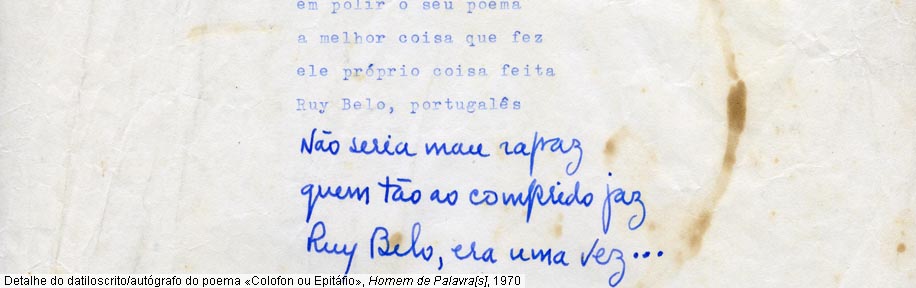 em polir o seu poema
a melhor coisa que fez
ele próprio coisa feita
Ruy Belo, portugalês
Não seria mau rapaz
quem tão ao comprido jaz
Ruy Belo, era uma vez...
Detalhe do datiloscrito/autógrafo do poema «Colofon ou Epitáfio», Homem de Palavra[s], 1970